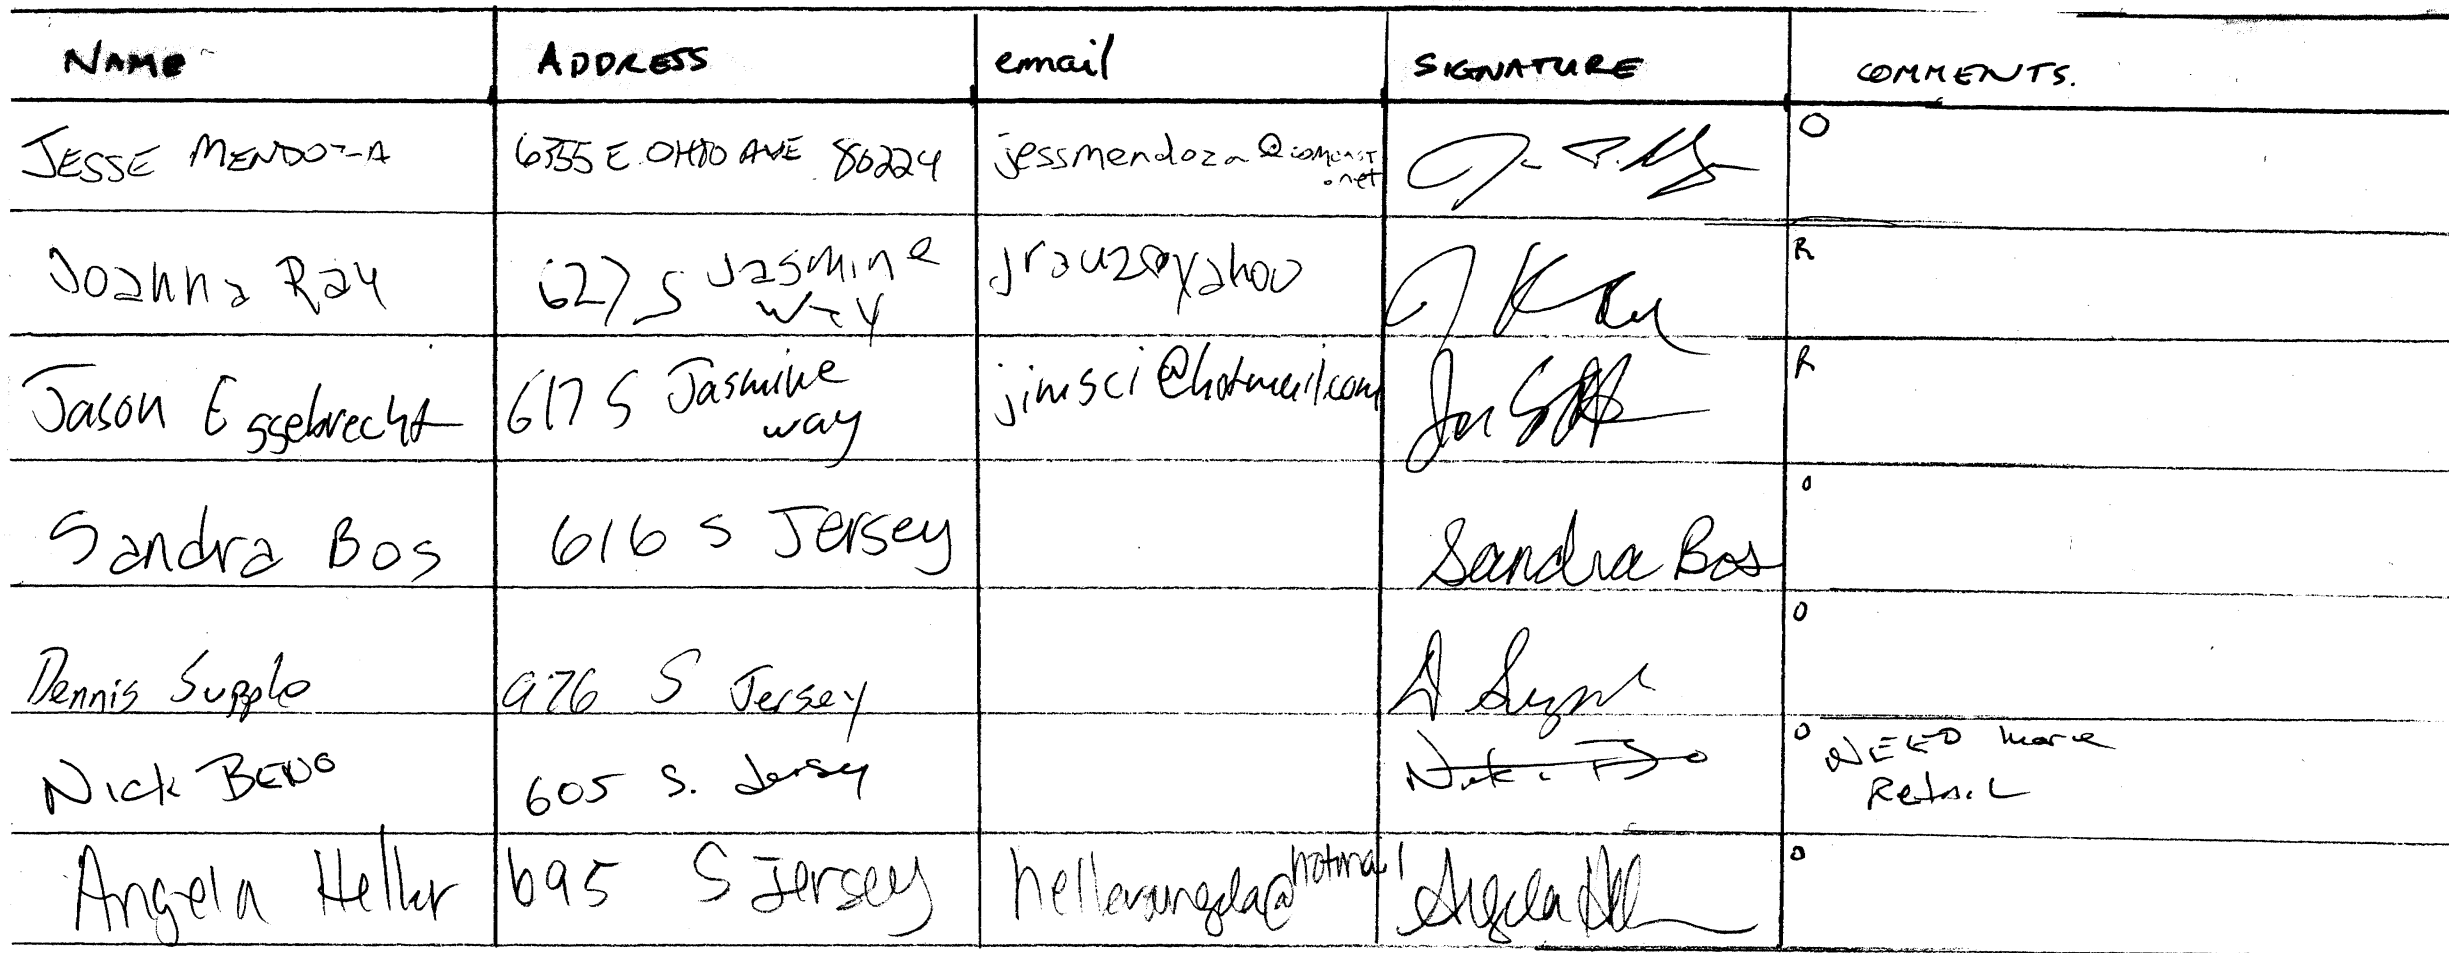 NAME ADDRESS email SIGNATURE COMMENTS.
JESSE MENDOZA 6355 E. OHIO AVE 80224 jessmendoza@comcast O
.net
Joanna Ray 627 S Jasmine jrau2@yahoo R
Way
Jason Eggebrecht 617 S Jasmine jimsci@hotmail.com R
way
Sandra Bos 616 S Jersey Sandra Bos O
Dennis Supple 976 S Jersey O
Nick BENO 605 S. Jersey O NEED more
Retail
Angela Heller 695 S Jersey hellerangela@hotmail Angela O